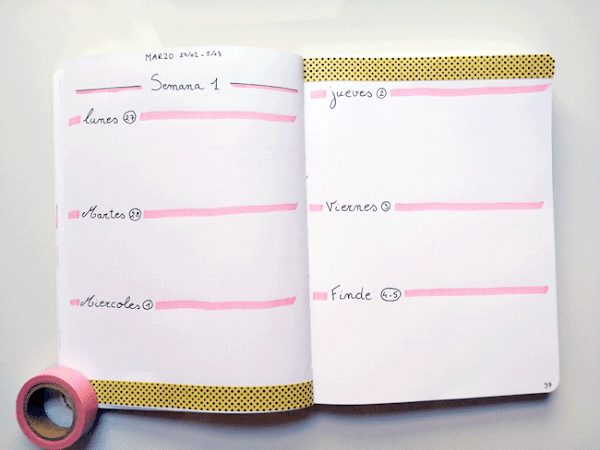 MARZO 27/02 - 5/03
Semana 1
lunes 27
Martes 28
Miercoles 1
jueves 2
Viernes 3
Finde 4-5
37